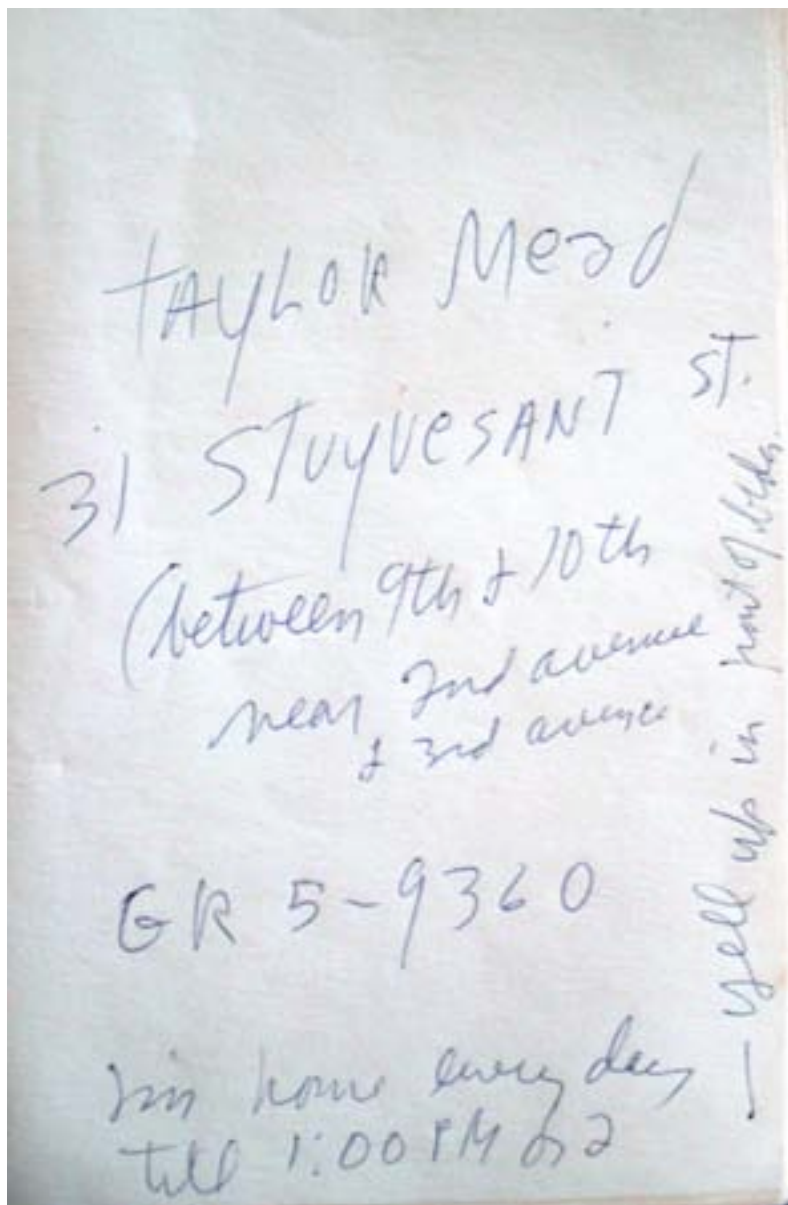 TAYLOR Mead
31 STUYVESANT ST.
(between 9th & 10th
near 2nd avenue
& 3rd avenue
GR 5-9360
I'm home every day
till 1:00 PM or 2
— yell up in front of bldg.